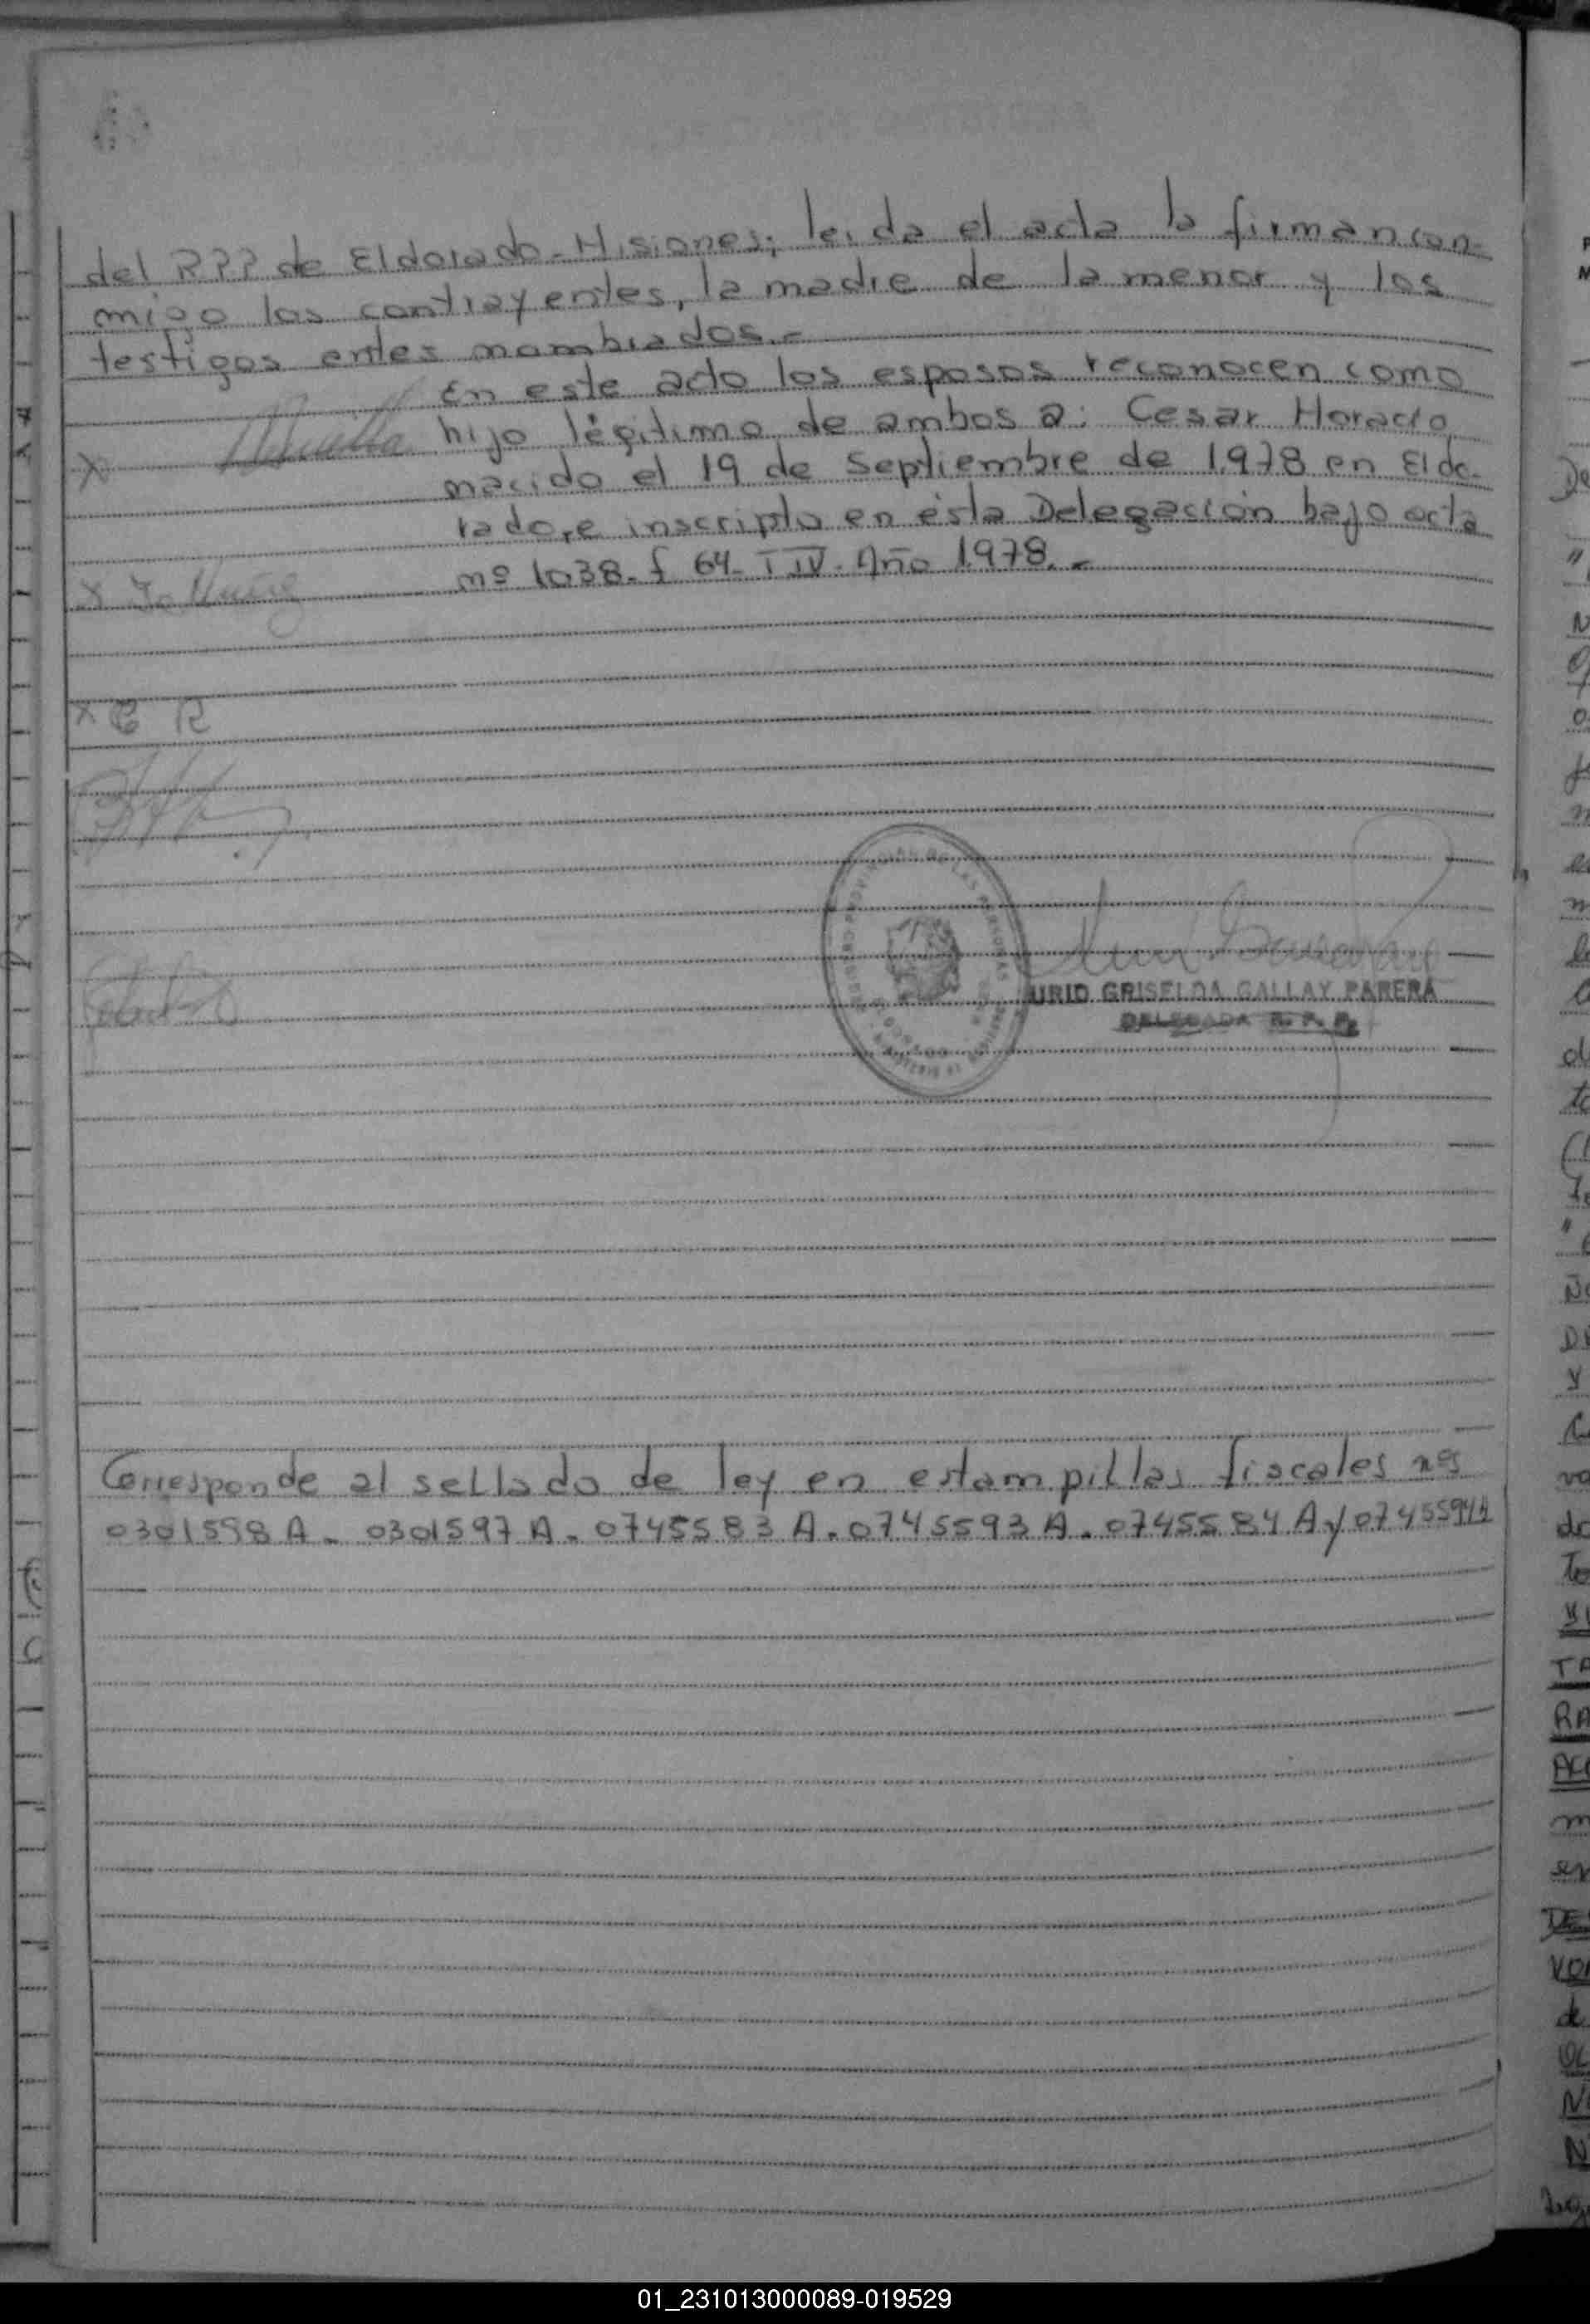 del RPP de Eldorado-Misiones; leida el acta la firman con-
migo los contrayentes, la madre de la menor y los
testigos antes nombrados.-
En este acto los esposos reconocen como
hijo légitimo de ambos a: Cesar Horacio,
nacido el 19 de Septiembre de 1.978 en Eldo-
rado, e inscripto en ésta Delegación bajo acta
nº 1038- f 64- T IV- Año 1.978.-
X
X
X C R
URID GRISELDA GALLAY PARERA
DELEGADA R. P. P.
Corresponde al sellado de ley en estampillas fiscales nºs
0301598 A- 0301597 A- 0745583 A- 0745593 A- 0745584 A y 0745594 A
01_231013000089-019529